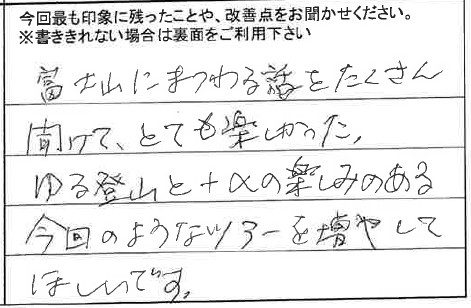 今回最も印象に残ったことや、改善点をお聞かせください。
※書ききれない場合は裏面をご利用下さい
富士山にまつわる話をたくさん
聞けて、とても楽しかった。
ゆる登山と+αの楽しみのある
今回のようなツアーを増やして
ほしいです。